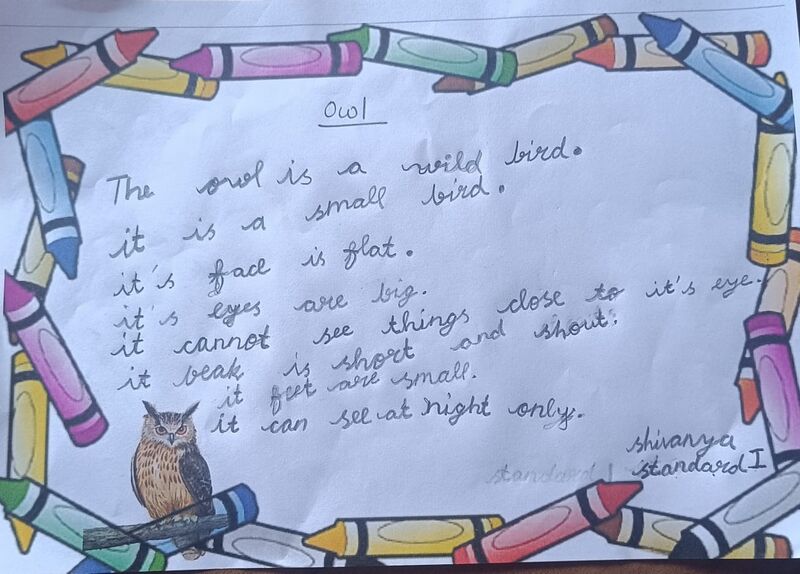 Owl
The owl is a wild bird.
it is a small bird.
it's face is flat.
it's eyes are big.
it cannot see things close to it's eye.
it beak is short and shout.
it feet are small.
it can see at night only.
shivanya
standard I standard I